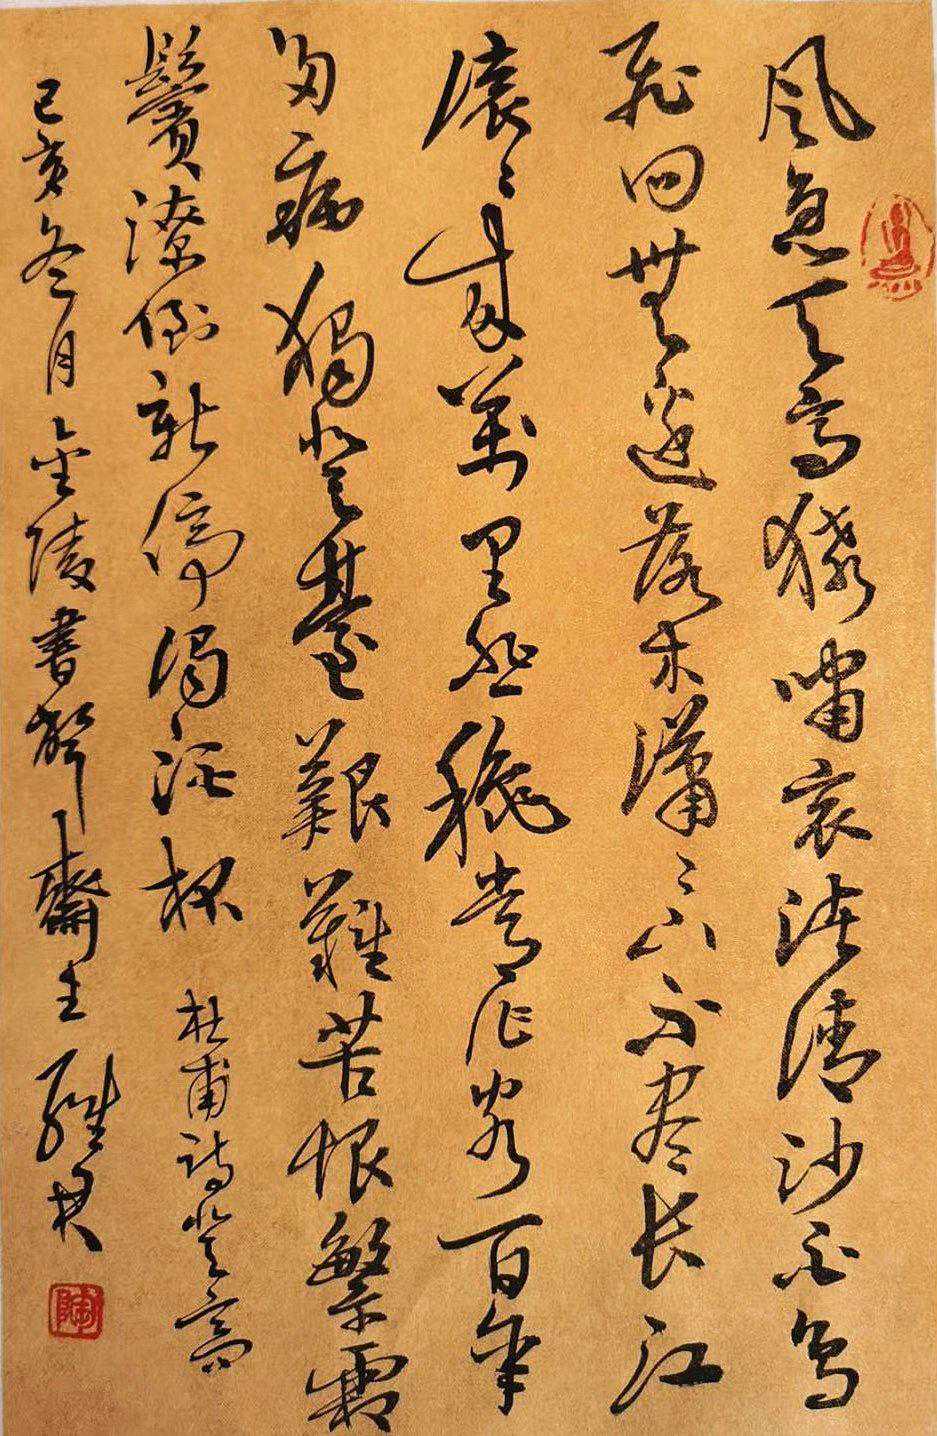 风急天高猿嘯哀渚清沙白鸟
飛回無邊落木瀟々下不尽长江
滾々来萬里悲秋常作客百年
多病獨登臺艱難苦恨繁霜
鬢潦倒新停濁酒杯 杜甫詩登高
己亥冬月金陵書齋主
陶